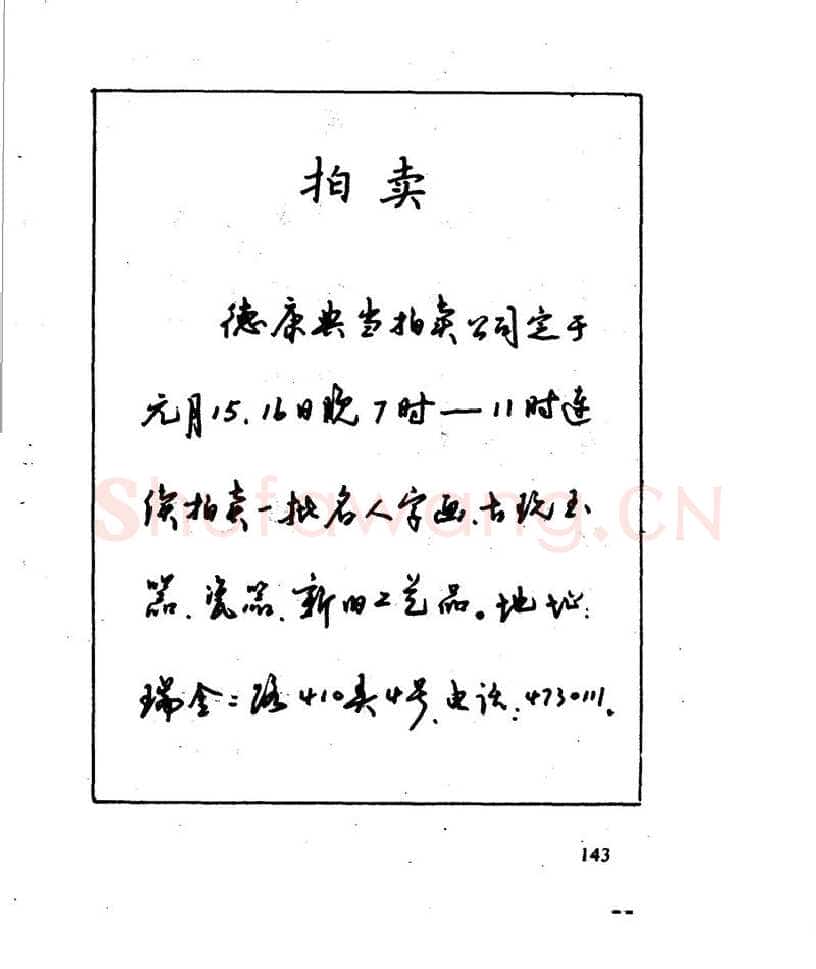 拍卖
德康典当拍卖公司定于
元月15.16日晚7时—11时连
续拍卖一批名人字画、古玩玉
器、瓷器、新旧工艺品。地址:
瑞金二路410弄4号、电话:4730111.
Shufawang.CN
143